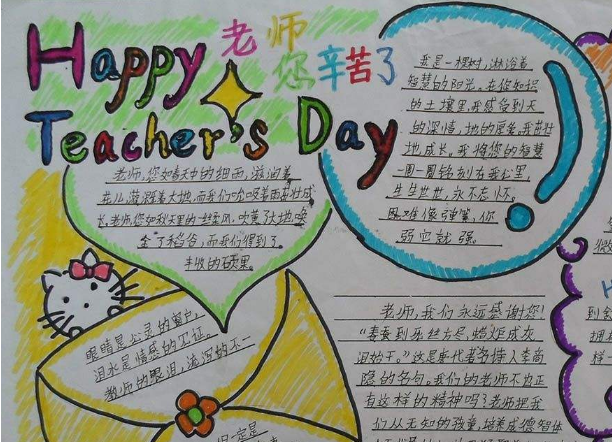 Happy
Teacher's Day
老师
您辛苦了
老师,您如春天中的细雨,滋润着
花儿灌溉着大地,而我们吮吸着雨茁壮成
长,老师,您如秋天里的一丝系风,吹黄了大地唤
金了稻谷,而我们得到了
丰收的硕果.
我是一棵树,淋浴着
智慧的阳光,在你知识
的土壤里,我感受到天
的深情,地的厚爱,我茁壮
地成长。我将您的智慧
一圈一圈铭刻在我心里,
生生世世,永不忘怀。
困难像弹簧,你
弱它就强。
眼睛是心灵的窗户,
泪水是情感的见证。
教师的眼泪,流泻的不一
一定是
老师,我们永远感谢您!
"春蚕到死丝方尽,蜡炬成灰
泪始干。"这是唐代著名诗人李商
隐的名句。我们的老师不也正
有这样的精神吗?老师把我
们从无知的孩童,培养成德智体